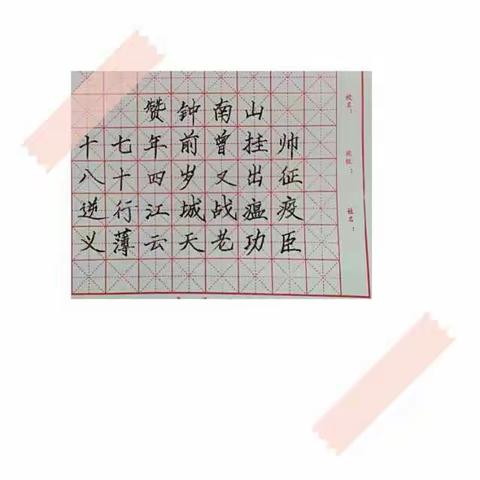 赞钟南山
十七年前曾挂帅
八十四岁又出征
逆行江城战瘟疫
义薄云天老功臣
班级：
姓名：